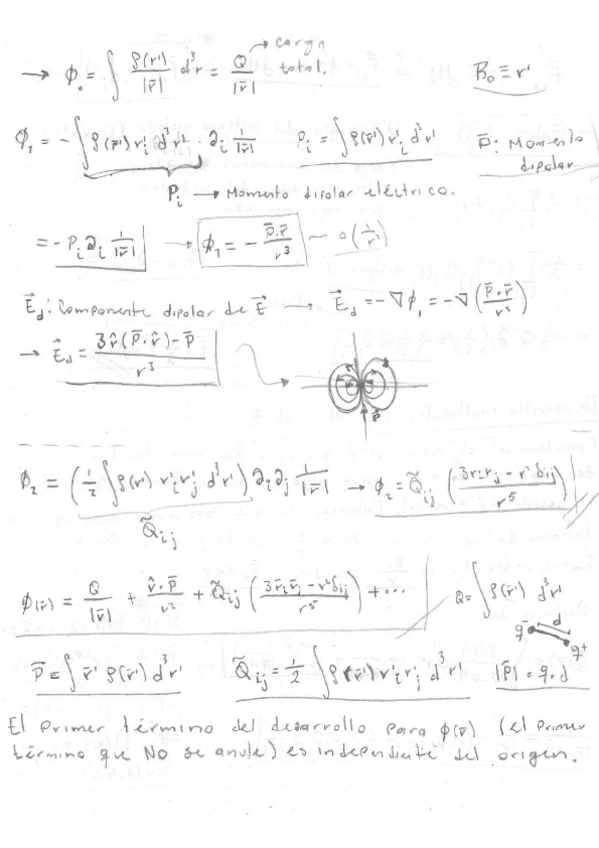 → ϕ₀ = ∫ ρ(r')/|r̄| d³r = Q/|r̄| → carga total. R₀ ≡ r'
ϕ₁ = -∫ρ(r̄')r'ᵢ d³r' · ∂ᵢ 1/|r̄| Pᵢ = ∫ρ(r̄')r'ᵢ d³r' p̄: Momento dipolar
Pᵢ → Momento dipolar eléctrico.
= -Pᵢ ∂ᵢ 1/|r̄| → ϕ₁ = - p̄·r̄/r³ ~ o(1/r²)
E⃗d: Componente dipolar de E⃗ → E⃗d = -∇ϕ₁ = -∇(p̄·r̄/r³)
→ E⃗d = 3r̂(p̄·r̂)-p̄/r³
p̄
ϕ₂ = (1/2 ∫ρ(r') r'ᵢr'ⱼ d³r') ∂ᵢ∂ⱼ 1/|r̄| → ϕ₂ = Q̃ᵢⱼ (3rᵢrⱼ - r²δᵢⱼ/r⁵)
Q̃ᵢⱼ
ϕ(r̄) = Q/|r̄| + r̂·p̄/r² + Q̃ᵢⱼ (3r̄ᵢr̄ⱼ - r²δᵢⱼ/r⁵) + ... Q = ∫ρ(r̄') d³r'
q⁻ d q⁺
p̄ = ∫ r̄' ρ(r̄') d³r' Q̃ᵢⱼ = 1/2 ∫ρ(r̄') r'ᵢr'ⱼ d³r' |p̄| = q·d
El primer término del desarrollo para ϕ(r̄) (el primer
término que NO se anule) es independiente del origen.